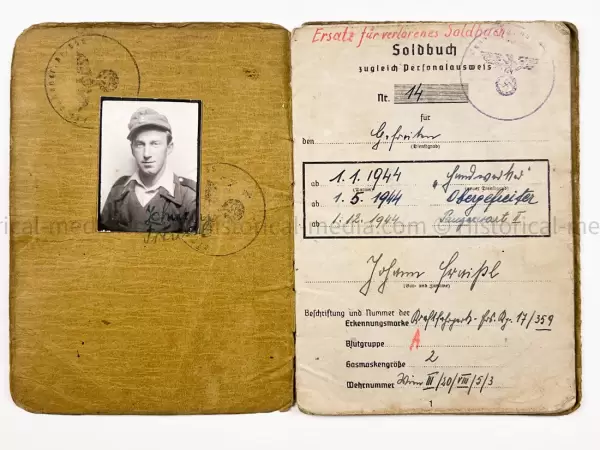 Ersatz für verlorenes Soldbuch
Soldbuch
zugleich Personalausweis
Nr. 14
für
den Gefreiten
(Dienstgrad)
ab 1.1.1944 „Handwerker"
ab 1.5.1944 Obergefreiter
ab 1.12.1944
Johann
(Vor- und Zuname)
Beschriftung und Nummer der
Erkennungsmarke Kraftfahrpark-Ers. Kp. 17/359
Blutgruppe A
Gasmaskengröße 2
Wehrnummer Wien III/20/VIII/5/3
1
historical-media.com © Historical-media.com © Historical-me